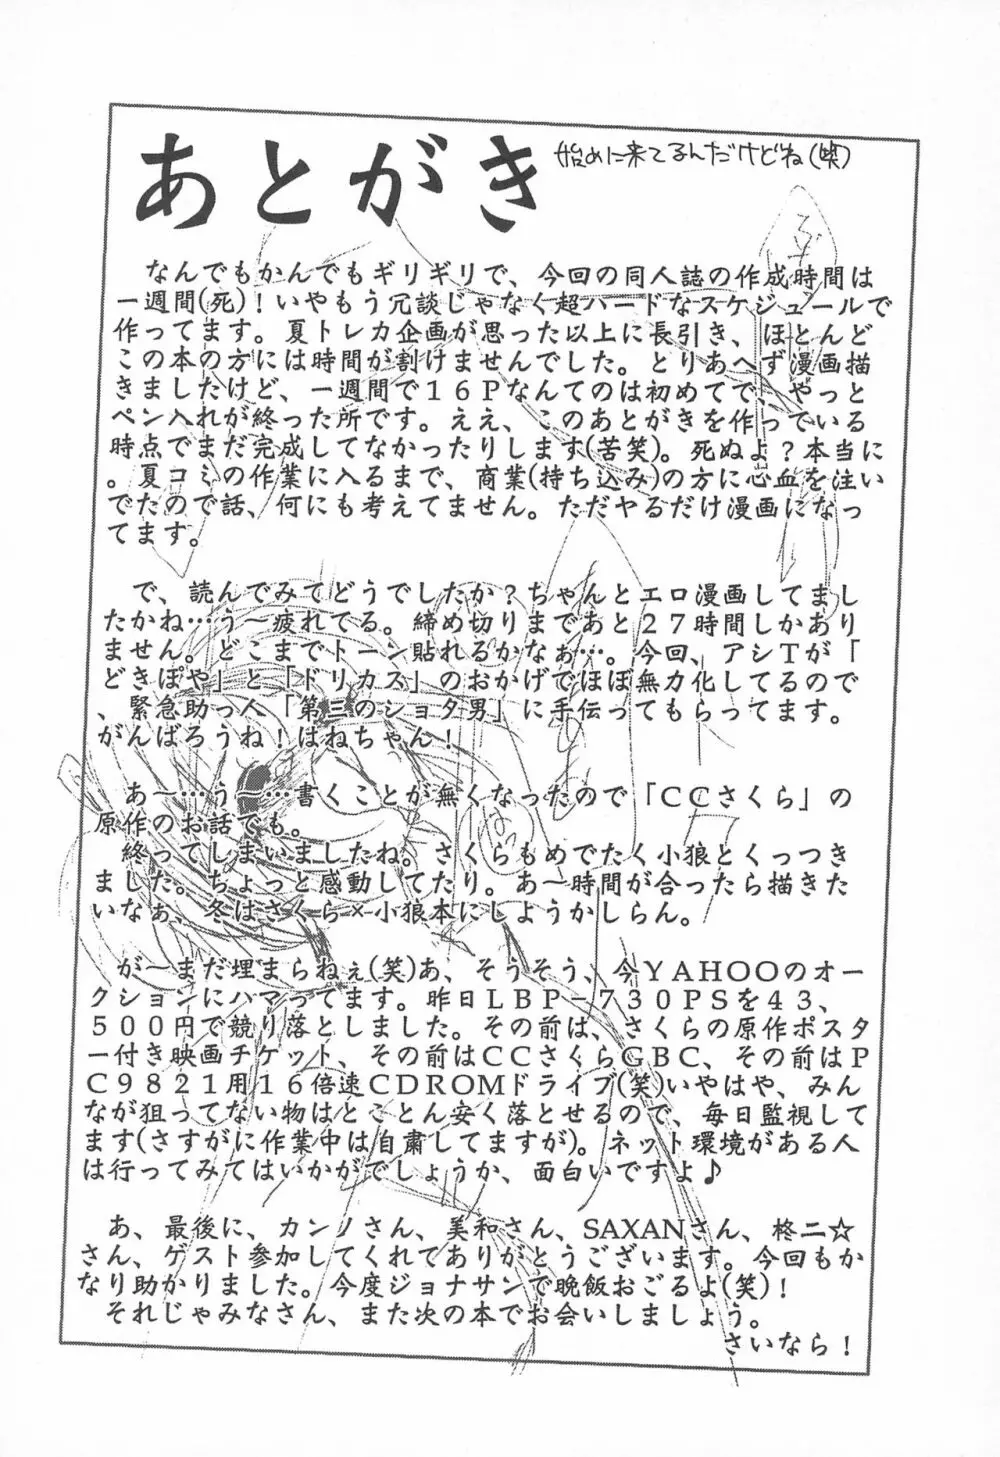 あとがき
始めに来てるんだけどね(笑)
なんでもかんでもギリギリで、今回の同人誌の作成時間は
一週間(死)！いやもう冗談じゃなく超ハードなスケジュールで
作ってます。夏トレカ企画が思った以上に長引き、ほとんど
この本の方には時間が割けませんでした。とりあへず漫画描
きましたけど、一週間で１６Ｐなんてのは初めてで、やっと
ペン入れが終った所です。ええ、このあとがきを作っている
時点でまだ完成してなかったりします(苦笑)。死ぬよ？本当に
。夏コミの作業に入るまで、商業(持ち込み)の方に心血を注い
でたので話、何にも考えてません。ただヤるだけ漫画になっ
てます。
で、読んでみてどうでしたか？ちゃんとエロ漫画してまし
たかね…う～疲れてる。締め切りまであと２７時間しかあり
ません。どこまでトーン貼れるかなぁ…。今回、アシＴが「
どきぽや」と「ドリカス」のおかげでほぼ無力化してるので
、緊急助っ人「第三のショタ男」に手伝ってもらってます。
がんばろうね！はねちゃん！
あ～…う～…書くことが無くなったので「ＣＣさくら」の
原作のお話でも。
終ってしまいましたね。さくらもめでたく小狼とくっつき
ました。ちょっと感動してたり。あ～時間が合ったら描きた
いなぁ、冬はさくら×小狼本にしようかしらん。
が～まだ埋まらねぇ(笑)あ、そうそう、今ＹＡＨＯＯのオー
クションにハマってます。昨日ＬＢＰ－７３０ＰＳを４３、
５００円で競り落としました。その前は、さくらの原作ポスタ
ー付き映画チケット、その前はＣＣさくらＧＢＣ、その前はＰ
Ｃ９８２１用１６倍速ＣＤＲＯＭドライブ(笑)いやはや、みん
なが狙ってない物はとことん安く落とせるので、毎日監視して
ます(さすがに作業中は自粛してますが)。ネット環境がある人
は行ってみてはいかがでしょうか、面白いですよ♪
あ、最後に、カンノさん、美和さん、SAXANさん、柊二☆
さん、ゲスト参加してくれてありがとうございます。今回もか
なり助かりました。今度ジョナサンで晩飯おごるよ(笑)！
それじゃみなさん、また次の本でお会いしましょう。
さいなら！